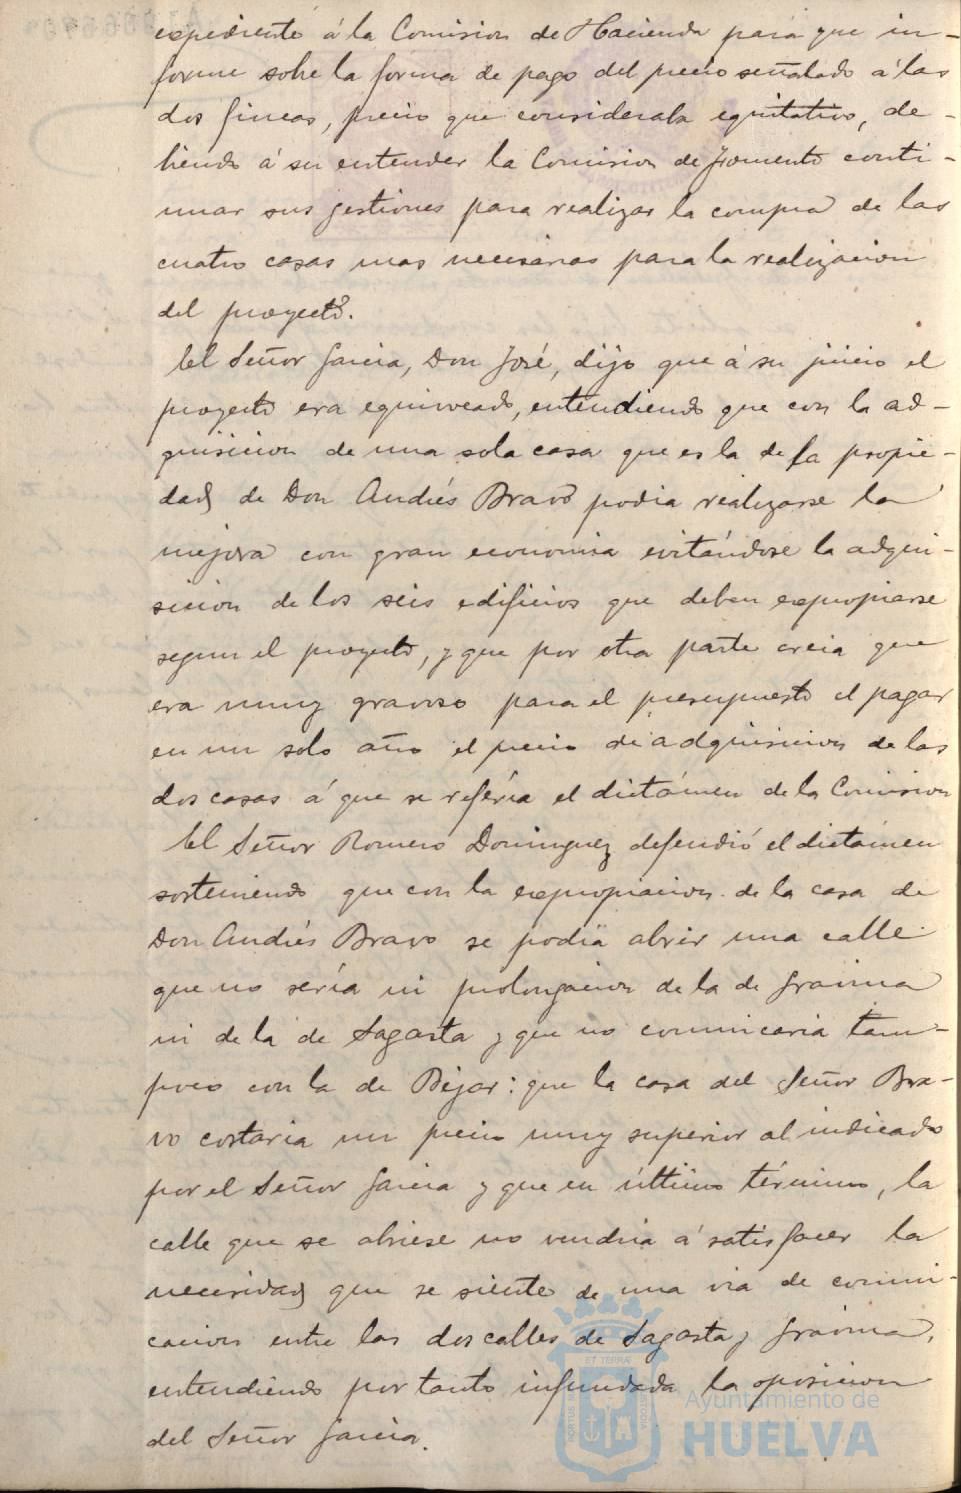 expediente á la Comision de Hacienda para que in-
forme sobre la forma de pago del precio señalado á las
dos fincas, precio que consideraba equitativo, de-
biendo á su entender la Comision de Fomento conti-
nuar sus gestiones para realizar la compra de las
cuatro casas mas necesarias para la realizacion
del proyecto.
El Señor Garcia, Don José, dijo que á su juicio el
proyecto era equivocado, entendiendo que con la ad-
quisicion de una sola casa que es la de la propie-
dad de Don Andrés Bravo podia realizarse la
mejora con gran economia evitándose la adqui-
sicion de los seis edificios que deben expropiarse
segun el proyecto, y que por otra parte creia que
era muy gravoso para el presupuesto el pagar
en un solo año el precio de adquisicion de las
dos casas á que se referia el dictámen de la Comision
El Señor Romero Dominguez defendió el dictámen
sosteniendo que con la expropiacion de la casa de
Don Andrés Bravo se podia abrir una calle
que no seria ni prolongacion de la de Gravina
ni de la de Sagasta y que no comunicaria tam-
poco con la de Bejar: que la casa del Señor Bra-
vo costaria un precio muy superior al indicado
por el Señor Garcia y que en último término, la
calle que se abriese no vendria á satisfacer la
necesidad que se siente de una via de comuni-
cacion entre las dos calles de Sagasta y Gravina,
entendiendo por tanto infundada la oposicion
del Señor Garcia.
Ayuntamiento de
HUELVA